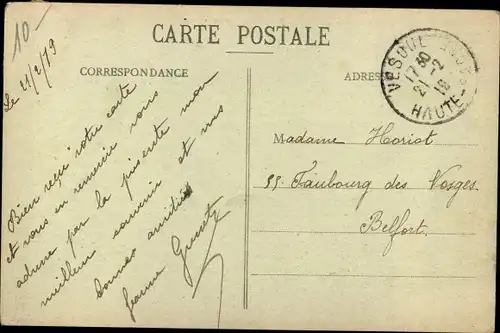 10-
CARTE POSTALE
CORRESPONDANCE
ADRESSE
VESOUL
17 30
21-2
HAUTE-
Le 21/2/19
Bien reçu votre carte
et vous en remercie vous
adresse par la présente mon
meilleur souvenir et mes
bonnes amitiés
Jeanne
Madame Horiot
55 Faubourg des Vosges
Belfort.